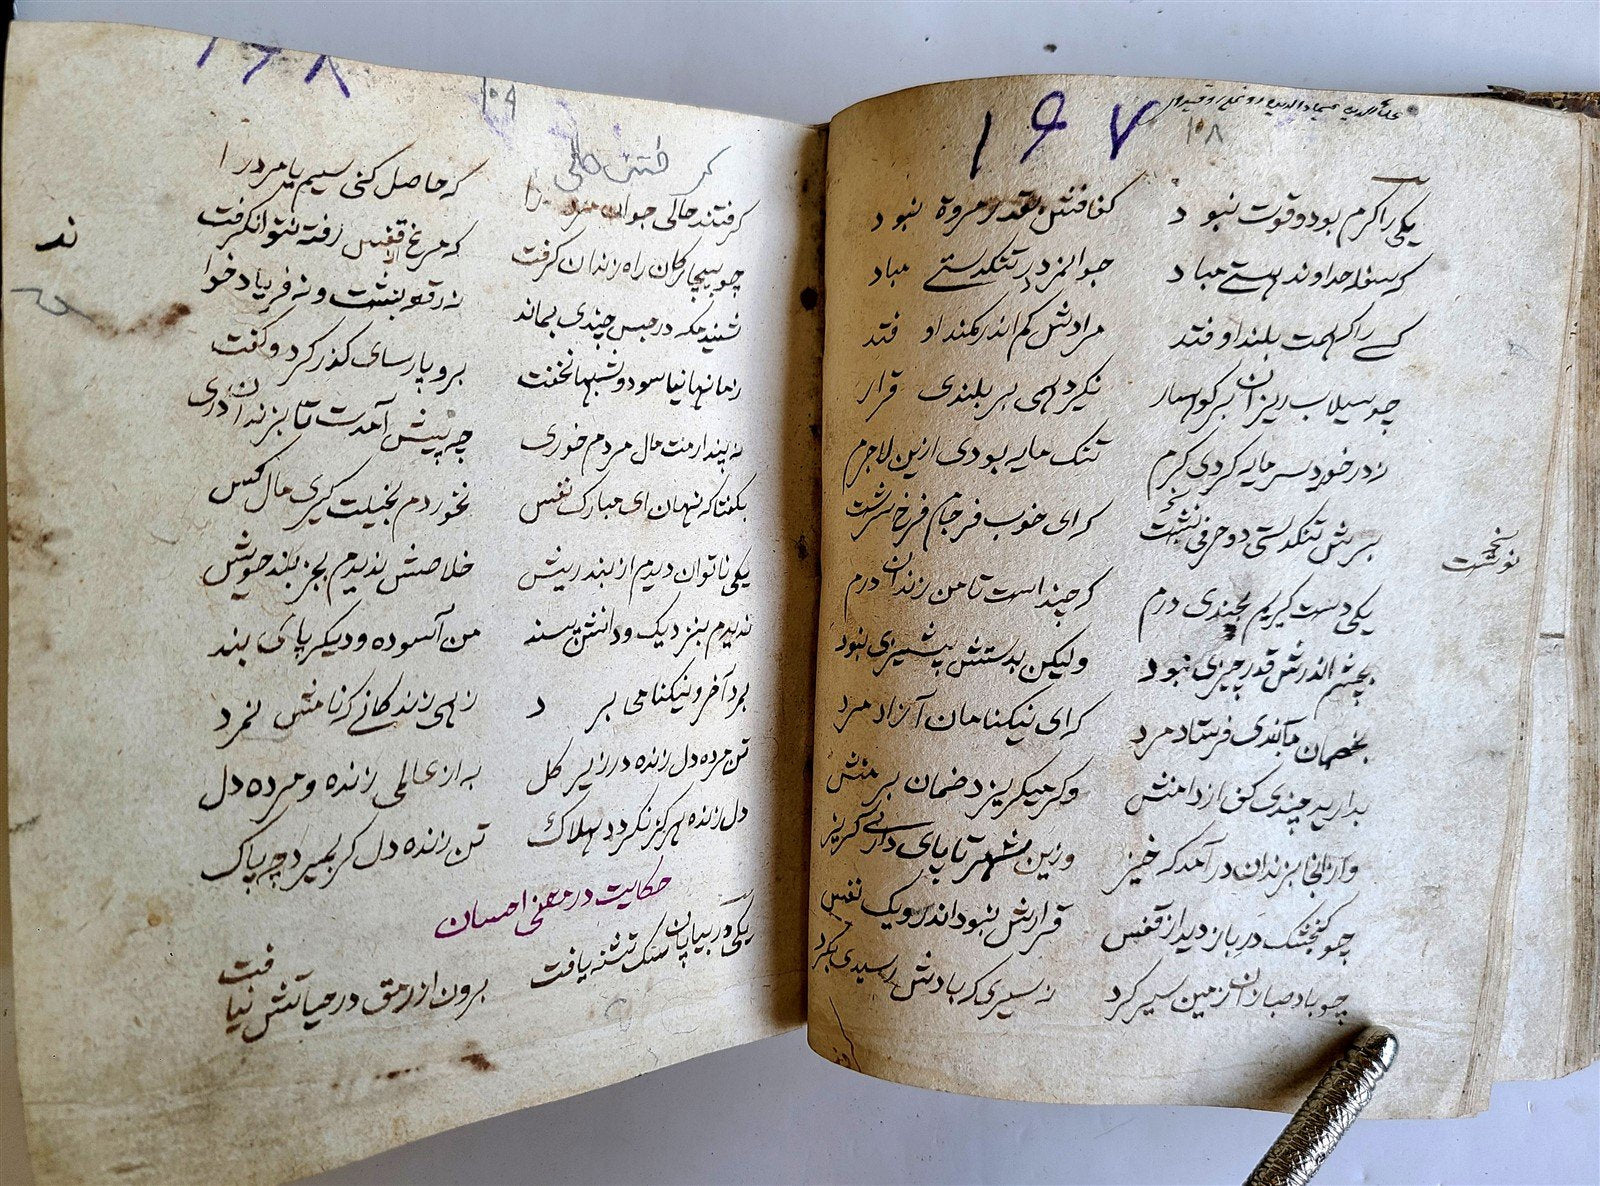 ۱۶۷
۱۰۸
یکی را کرم بود و قوت نبود کفافش بقدر مروة نبود
که سفله خداوند هستی مباد جوانمرد در تنکدستے مباد
کسے را که همت بلند اوفتد مرادش کم اندر کمند او فتد
چو سیلاب ریزان بر کوهسار نکیرد همی بر بلندی قرار
نه در خورد سرمایه کردی کرم تنک مایه بودی ازین لاجرم
برش تنکدستی دو حرفی نبشت که ای خوب فرجام فرخ سرشت
نوشت
یکی دست کیرم بچندی درم که چند است تا من زندان درم
بچشم اندرش قدر چیزی نبود ولیکن بدستش پشیزی نبود
بخصمان بندی فرستاد مرد که ای نیکنامان آزاد مرد
بدارید چندی کف از دامنش وکر میکریزد ضمان بر منش
وزانجا بزندان درآمد که خیز وزین شهر تا پای داری کریز
چو کنجشک در باز دید از قفس قرارش نبود اندرو یک نفس
چو باد صبا زان زمین سیر کرد نه سیری که بادش رسیدی بکرد
۱۶۸
۱۰۹
کرفتند حالی جوانمرد را که حاصل کنی سیم یا مرد را
چو بیچارکان راه زندان کرفت که مرغ از قفس رفته نتوان کرفت
ند
شنیدم که در حبس چندی بماند نه رقعه نبشت و نه فریاد خوا
زمانها نیاسود و شبها نخفت برو پارسای کذر کرد و کفت
نه پندارمت مال مردم خوری چه پیش آمدت تا بزندان دری
بکفتا که نهان ای مبارک نفس نخوردم بحیلت کری مال کس
یکی ناتوان دیدم از بند ریش خلاصش ندیدم بجز بند خویش
ندیدم بنزدیک و دانش پسند من آسوده و دیکر پای بند
بمرد آخر و نیکنامی ببرد زهی زندکانے که نامش نمرد
تن مرده دل زنده در زیر کل به از عالمی زنده و مرده دل
دل زنده هرکز نکردد هلاک تن زنده دل کر بمیرد چه باک
حکایت در معنی احسان
یکی در بیابان سک تشنه یافت برون از رمق در حیاتش نیافت